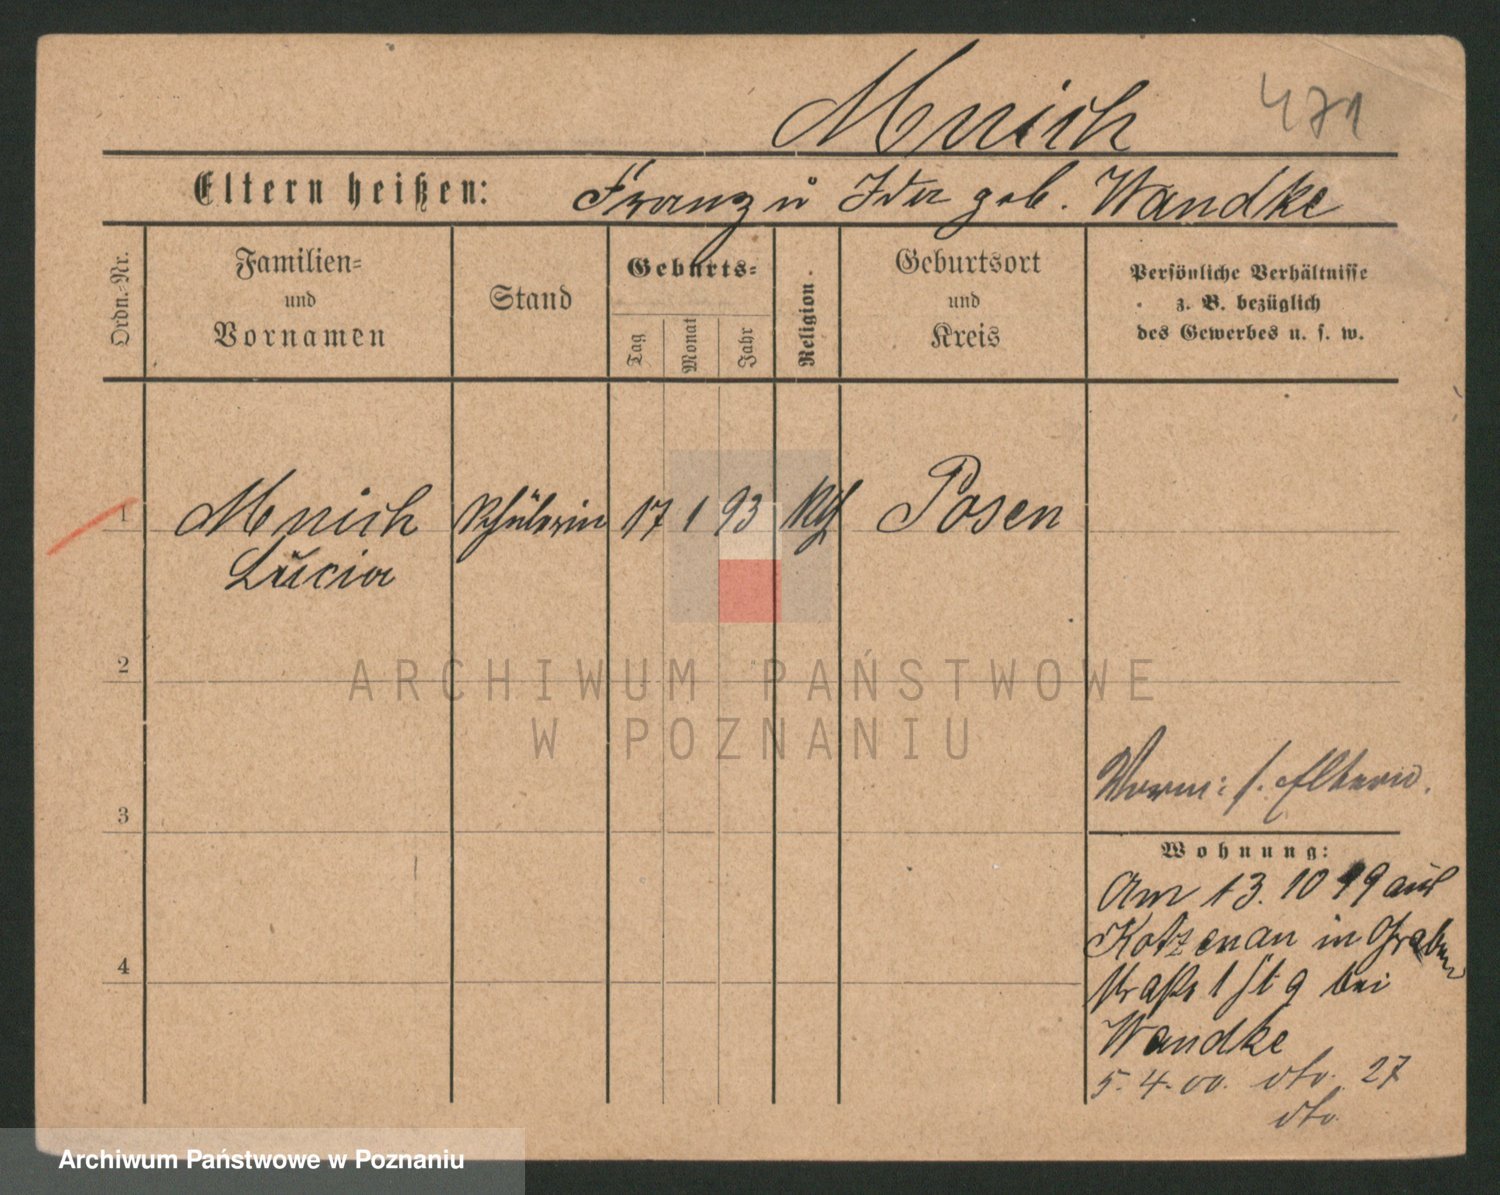 Mnich
471
Eltern heißen: Franz u Ida geb. Wandke
Ordn.-Nr.
Familien=
und
Vornamen
Stand
Geburts=
Tag
Monat
Jahr
Religion.
Geburtsort
und
Kreis
Persönliche Verhältnisse
z. B. bezüglich
des Gewerbes u. s. w.
1 Mnich Schülerin 17 1 93 Kth Posen
Lucia
2
ARCHIWUM PAŃSTWOWE
W POZNANIU
Vorm: s. Eltern.
3
Wohnung:
Am 13. 10 99 aus
Kotzenau in Graben
4
straße 1 bei
Wandke
5. 4. 00. dto. 27
dto.
Archiwum Państwowe w Poznaniu